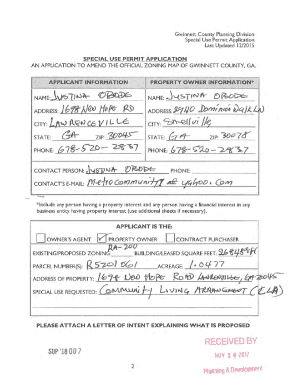 Gwinnett County Planning Division
Special Use Permit Application
Last Updated 12/2015
SPECIAL USE PERMIT APPLICATION
AN APPLICATION TO AMEND THE OFFICIAL ZONING MAP OF GWINNETT COUNTY, GA.
APPLICANT INFORMATION PROPERTY OWNER INFORMATION*
NAME: JUSTINA OBODE NAME: JUSTINA OBODE
ADDRESS: 1698 NEW HOPE RD ADDRESS: 2940 Dominion
CITY: LAWRENCEVILLE CITY: Snellville
STATE: GA ZIP: 30045 STATE: GA ZIP: 30078
PHONE: 678-520-2837 PHONE: 678-520-2837
CONTACT PERSON: JUSTINA OBODE PHONE:
CONTACT'S E-MAIL: Metrocommunity @ yahoo.com
*Include any person having a property interest and any person having a financial interest in any
business entity having property interest (use additional sheets if necessary).
APPLICANT IS THE:
OWNER'S AGENT PROPERTY OWNER CONTRACT PURCHASER
EXISTING/PROPOSED ZONING RA-200 BUILDING/LEASED SQUARE FEET:
PARCEL NUMBER(S): R5201 061 ACREAGE: 1.0477
ADDRESS OF PROPERTY: 1698 NEW HOPE ROAD LAWRENCEVILLE, GA 30045
SPECIAL USE REQUESTED: COMMUNITY LIVING ARRANGMENT (CLA)
PLEASE ATTACH A LETTER OF INTENT EXPLAINING WHAT IS PROPOSED
SUP '18 007
RECEIVED BY
NOV 3 0 2017
Planning & Development
2